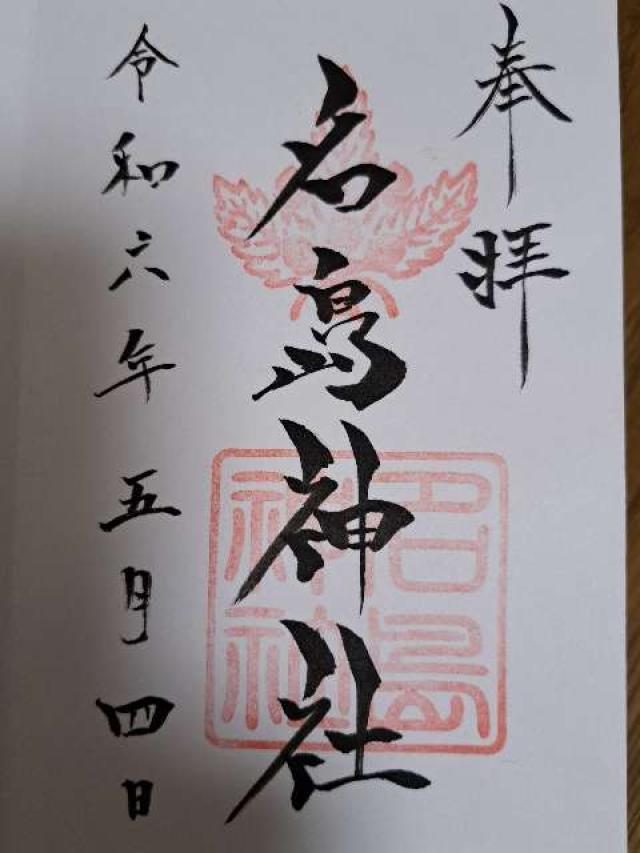 奉拝
名島神社
名島
神社
令和六年五月四日